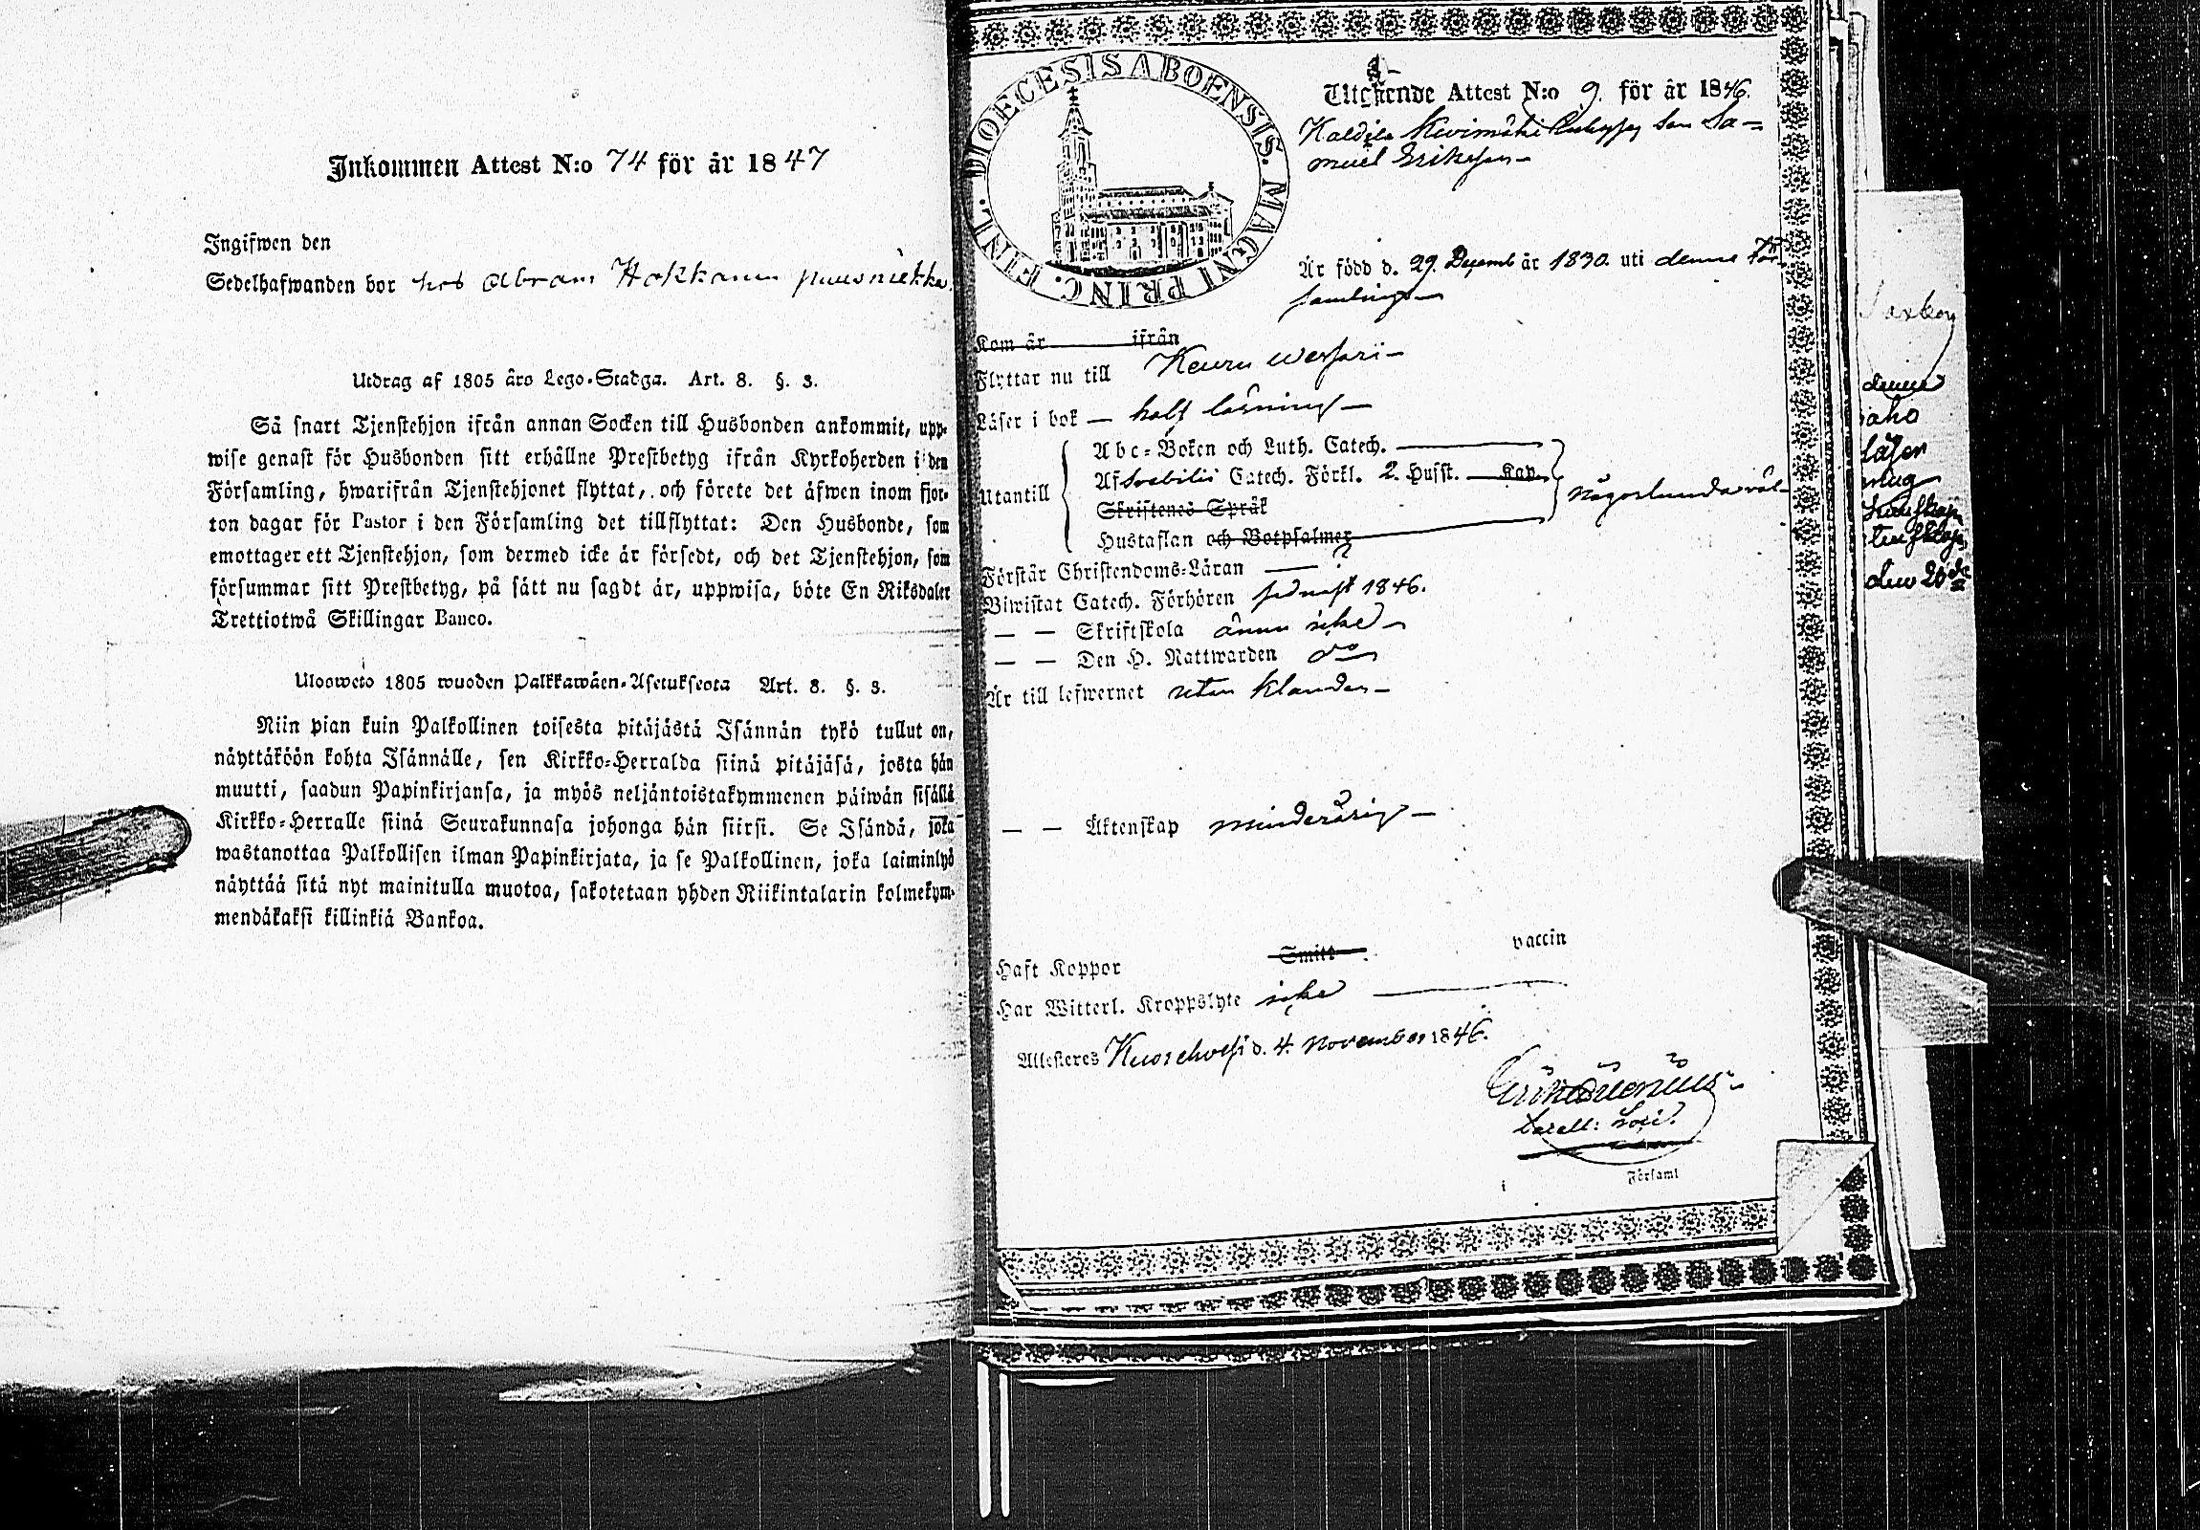 Inkommen Attest N:o 74 för år 1847
Ingifwen den
Sedelhafwanden bor hos Abram Hokkanen
Utdrag af 1805 åro Lego-Stadga. Art. 8. §. 3.
Så snart Tjenstehjon ifrån annan Socken till Husbonden ankommit, upp-
wise genast för Husbonden sitt erhållne Prestbetyg ifrån Kyrkoherden i den
Församling, hwarifrån Tjenstehjonet flyttat, och förete det äfwen inom fjor-
ton dagar för Pastor i den Församling det tillflyttat: Den Husbonde, som
emottager ett Tjenstehjon, som dermed icke är försedt, och det Tjenstehjon, som
försummar sitt Prestbetyg, på sått nu sagdt är, uppwisa, böte En Riksdaler
Trettiotwå Skillingar Banco.
Ulooweto 1805 wuoden Palkkawäen-Asetukseota Art. 8. §. 3.
Niin pian kuin Palkollinen toisesta pitäjästä Isännän tykö tullut on,
näyttäköön kohta Isännälle, sen Kirkko-Herralda siinä pitäjäsä, josta hän
muutti, saadun Papinkirjansa, ja myös neljäntoistakymmenen päiwän sisällä
Kirkko-Herralle siinä Seurakunnasa johonga hän siirsi. Se Isändä, joka
wastanottaa Palkollisen ilman Papinkirjata, ja se Palkollinen, joka laiminlyö
näyttää sitä nyt mainitulla muotoa, sakotetaan yhden Riikintalarin kolmekym-
mendäkaksi killinkiä Bankoa.
DIOECESIS ABOENSIS. MAGNI PRINC. FINL.
Utgående Attest N:o 9. för år 1846.
Kaldila Kivimäki son Sa-
muel Eriksson
Är född d. 29. Decemb år 1830. uti denna För-
samling
Kom år ifrån
Flyttar nu till Keuru
Läser i bok — half läsning
Utantill
Abc-Boken och Luth. Catech.
Af Svebilii Catech. Förkl. 2. Husst. Kap.
någorlunda väl
Skriftenes Språk
Hustaflan och Botpsalmer
Förstår Christendoms-Läran — ?
Biwistat Catech. Förhören sednast 1846.
— — Skriftskola ännu icke
— — Den H. Nattwarden do
Är till lefwernet utan klander
— — Äktenskap minderårig
Haft Koppor Smitt vaccin
Har Witterl. Kroppslyte icke
Attesteres Kuorehvesi d. 4. November 1846.
Församl
denne
aho
läser
den 20de